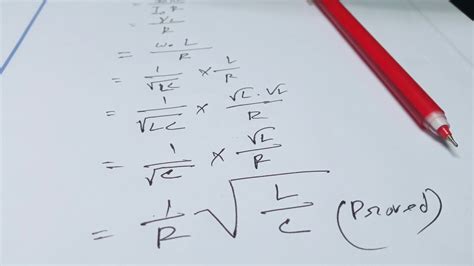 I₀ R
= X_L / R
= ω₀ L / R
= 1/√LC × L/R
= 1/√LC × √L · √L / R
= 1/√C × √L/R
= 1/R √(L/C) (Proved)